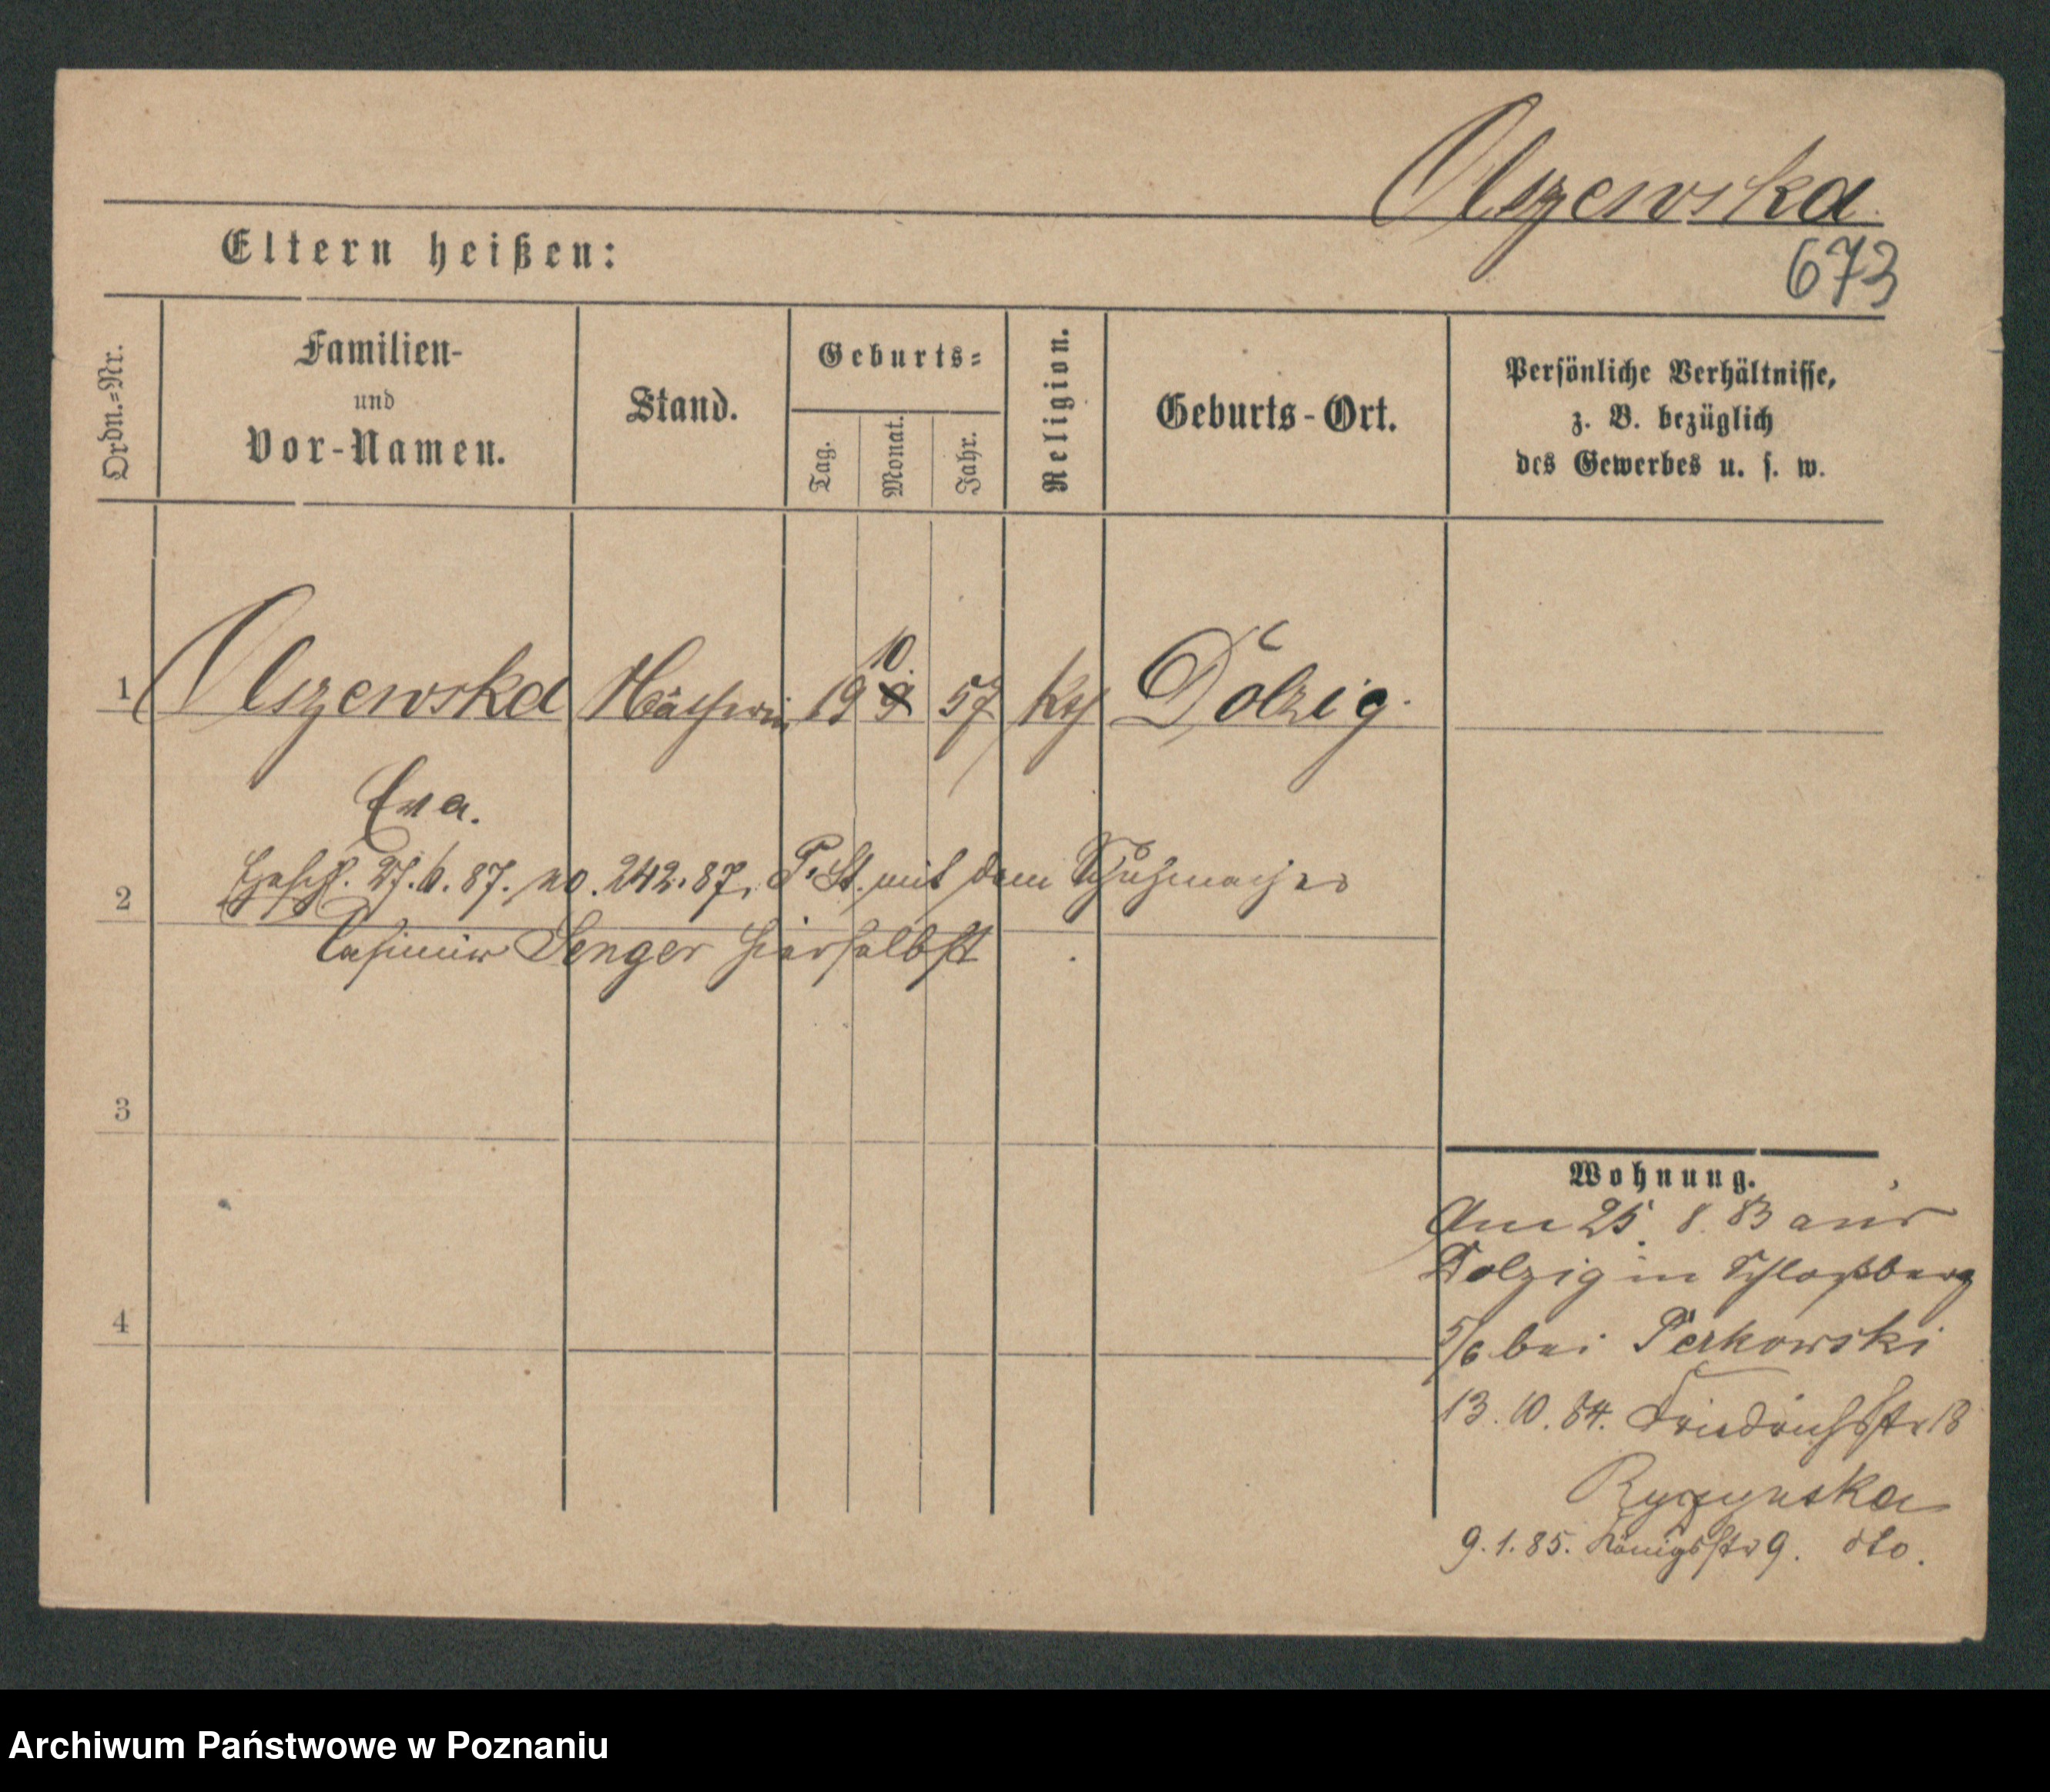 Olszewska
673
Eltern heißen:
Ordn.=Nr.
Familien-
und
Vor-Namen.
Stand.
Geburts=
Tag.
Monat.
Jahr.
Religion.
Geburts-Ort.
Persönliche Verhältnisse,
z. B. bezüglich
des Gewerbes u. s. w.
10.
1 Olszewska Näherin 19 9 57 kth Dolzig.
Eva.
2 27. 6. 87. no. 242.87. P. St. mit dem Schuhmacher
Casimir Senger hierselbst
3
4
Wohnung.
Am 25. 8. 83 aus
Dolzig in Schloßberg
5/6 bei Perkowski
13. 10. 84. Friedrichstr 18
9. 1. 85. Königsstr 9. dto.
Archiwum Państwowe w Poznaniu